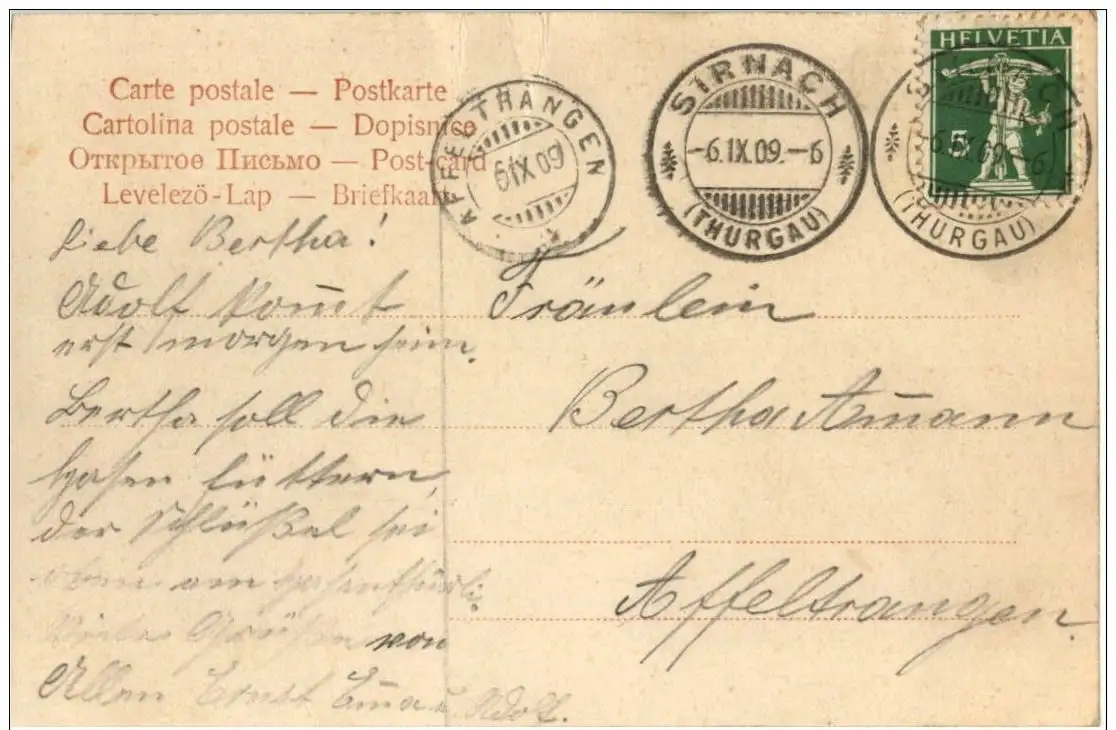 Carte postale — Postkarte
Cartolina postale — Dopisnice
Открытое Письмо — Post-card
Levelező-Lap — Briefkaart
AFFELTRANGEN
6 IX 09
SIRNACH
-6.IX.09.-6
(THURGAU)
HELVETIA
5
SIRNACH
-6.IX.09.-6
(THURGAU)
Liebe Bertha!
Adolf kom̅t
erst morgen heim.
Bertha soll die
Hasen füttern,
der Schlüßel sei
oben am Hasenthürli.
Viele Grüße von
Allen Ernst Em̅a u Adolf.
Fräulein
Bertha Am̅ann
Affeltrangen.